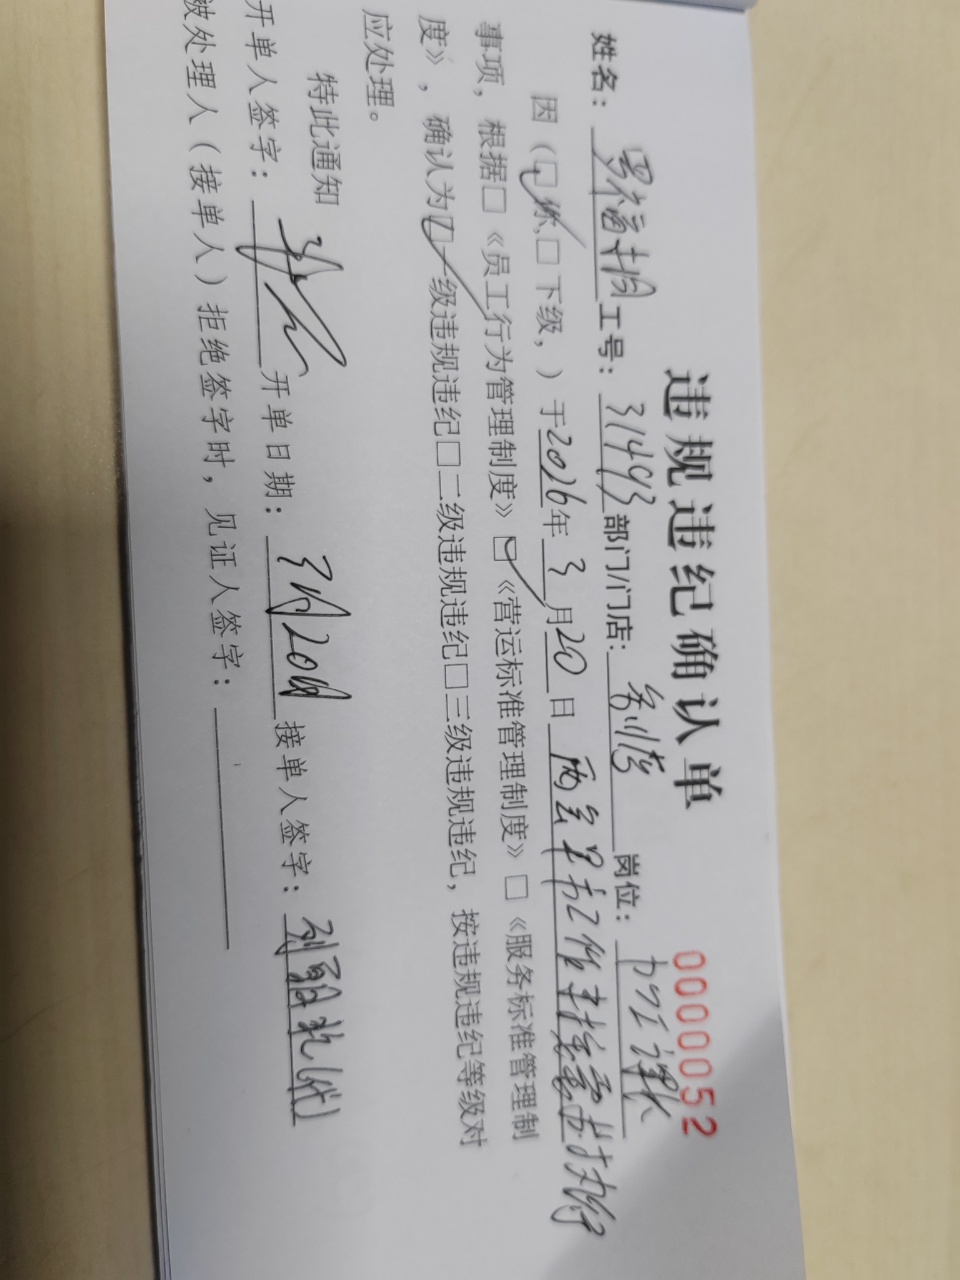 违规违纪确认单
0000052
姓名：罗福 工号：31493 部门/门店： 岗位：加工课长
因（☑你,□下级,）于2026年3月20日
事项，根据□《员工行为管理制度》☑《营运标准管理制度》□《服务标准管理制
度》，确认为☑一级违规违纪□二级违规违纪□三级违规违纪，按违规违纪等级对
应处理。
特此通知
开单人签字： 开单日期：3月20日 接单人签字：
被处理人（接单人）拒绝签字时，见证人签字：